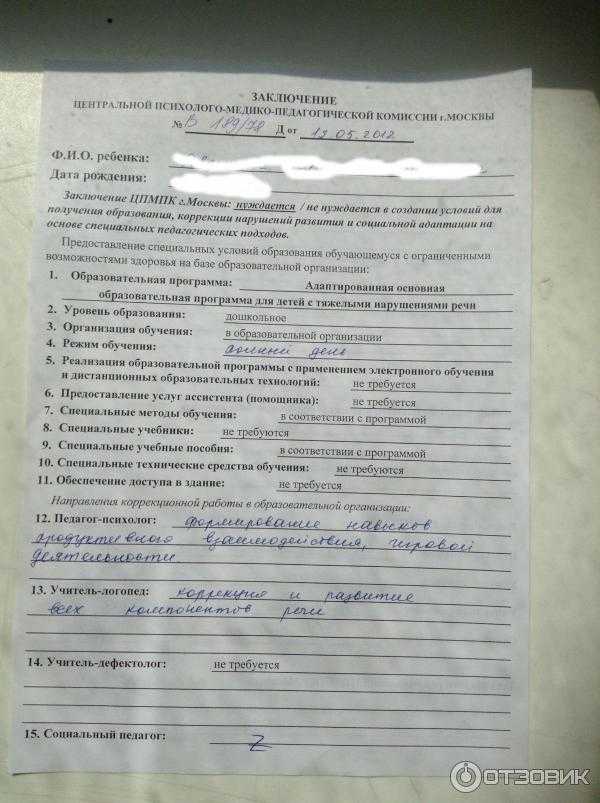 ЗАКЛЮЧЕНИЕ
ЦЕНТРАЛЬНОЙ ПСИХОЛОГО-МЕДИКО-ПЕДАГОГИЧЕСКОЙ КОМИССИИ г.МОСКВЫ
№ В 189/78 Д от 12 05. 2012
Ф.И.О. ребенка:
Дата рождения:
Заключение ЦПМПК г.Москвы: нуждается / не нуждается в создании условий для
получения образования, коррекции нарушений развития и социальной адаптации на
основе специальных педагогических подходов.
Предоставление специальных условий образования обучающемуся с ограниченными
возможностями здоровья на базе образовательной организации:
1. Образовательная программа: Адаптированная основная
образовательная программа для детей с тяжелыми нарушениями речи
2. Уровень образования: дошкольное
3. Организация обучения: в образовательной организации
4. Режим обучения: полный день
5. Реализация образовательной программы с применением электронного обучения
и дистанционных образовательных технологий: не требуется
6. Предоставление услуг ассистента (помощника): не требуется
7. Специальные методы обучения: в соответствии с программой
8. Специальные учебники: не требуются
9. Специальные учебные пособия: в соответствии с программой
10. Специальные технические средства обучения: не требуются
11. Обеспечение доступа в здание: не требуется
Направления коррекционной работы в образовательной организации:
12. Педагог-психолог: формирование навыков
продуктивного взаимодействия, игровой
деятельности
13. Учитель-логопед: коррекция и развитие
всех компонентов речи
14. Учитель-дефектолог: не требуется
15. Социальный педагог: Z
ОТЗОВИК